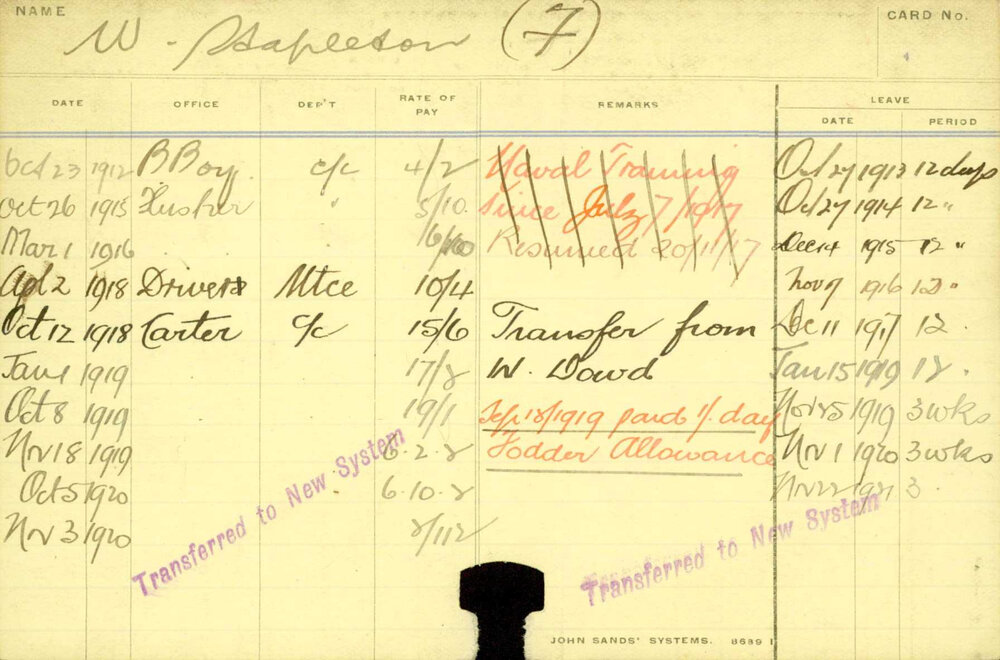 NAME
W. Stapleton (7)
CARD No.
DATE OFFICE DEP'T RATE OF PAY REMARKS LEAVE
DATE PERIOD
Oct 23 1912 B Boy c/c 4/2 Naval Training Oct 27 1913 12 days
Oct 26 1915 " 5/10 Since July 7/1917 Oct 27 1914 12 "
Mar 1 1916 Resumed 20/11/17 Dec 14 1915 12 "
Apl 2 1918 Driver Mtce 10/4 Nov 9 1916 12 "
Oct 12 1918 Carter c/c 15/6 Transfer from Dec 11 1917 12 "
Jan 1 1919 17/8 W. Dowd Jan 15 1919 12 "
Oct 8 1919 19/1 Sep 18/1919 paid 1/. day Nov 25 1919 3 wks
Nov 18 1919 6.2.8 Fodder Allowance Nov 1 1920 3 wks
Oct 5 1920 6.10.8 Nov 22 1921 3
Nov 3 1920 8/112
Transferred to New System
Transferred to New System
JOHN SANDS' SYSTEMS. 8689